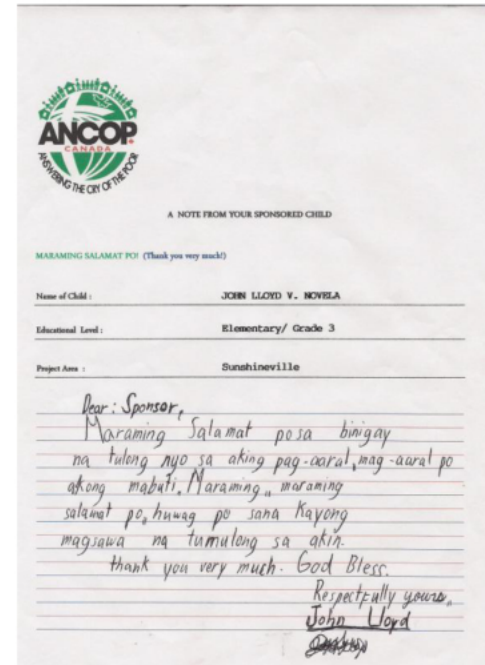 ANCOP
CANADA
ANSWERING THE CRY OF THE POOR
A NOTE FROM YOUR SPONSORED CHILD
MARAMING SALAMAT PO! (Thank you very much!)
Name of Child : JOHN LLOYD V. NOVELA
Educational Level : Elementary/ Grade 3
Project Area : Sunshineville
Dear : Sponsor,
Maraming Salamat po sa binigay
na tulong nyo sa aking pag-aaral, mag-aaral po
akong mabuti. Maraming, maraming
salamat po, huwag po sana Kayong
magsawa na tumulong sa akin.
thank you very much. God Bless.
Respectfully yours,
John Lloyd